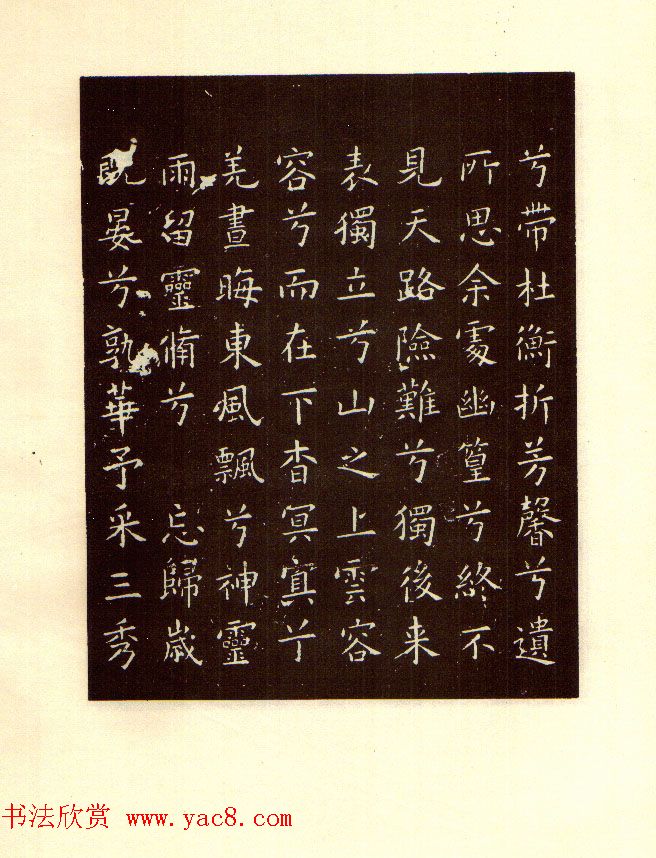 兮帶杜衡折芳馨兮遺
所思余處幽篁兮終不
見天路險難兮獨後来
表獨立兮山之上雲容
容兮而在下杳冥冥兮
羌晝晦東風飄兮神靈
雨留靈脩兮 忘歸歲
既晏兮孰華予采三秀
书法欣赏 www.yac8.com